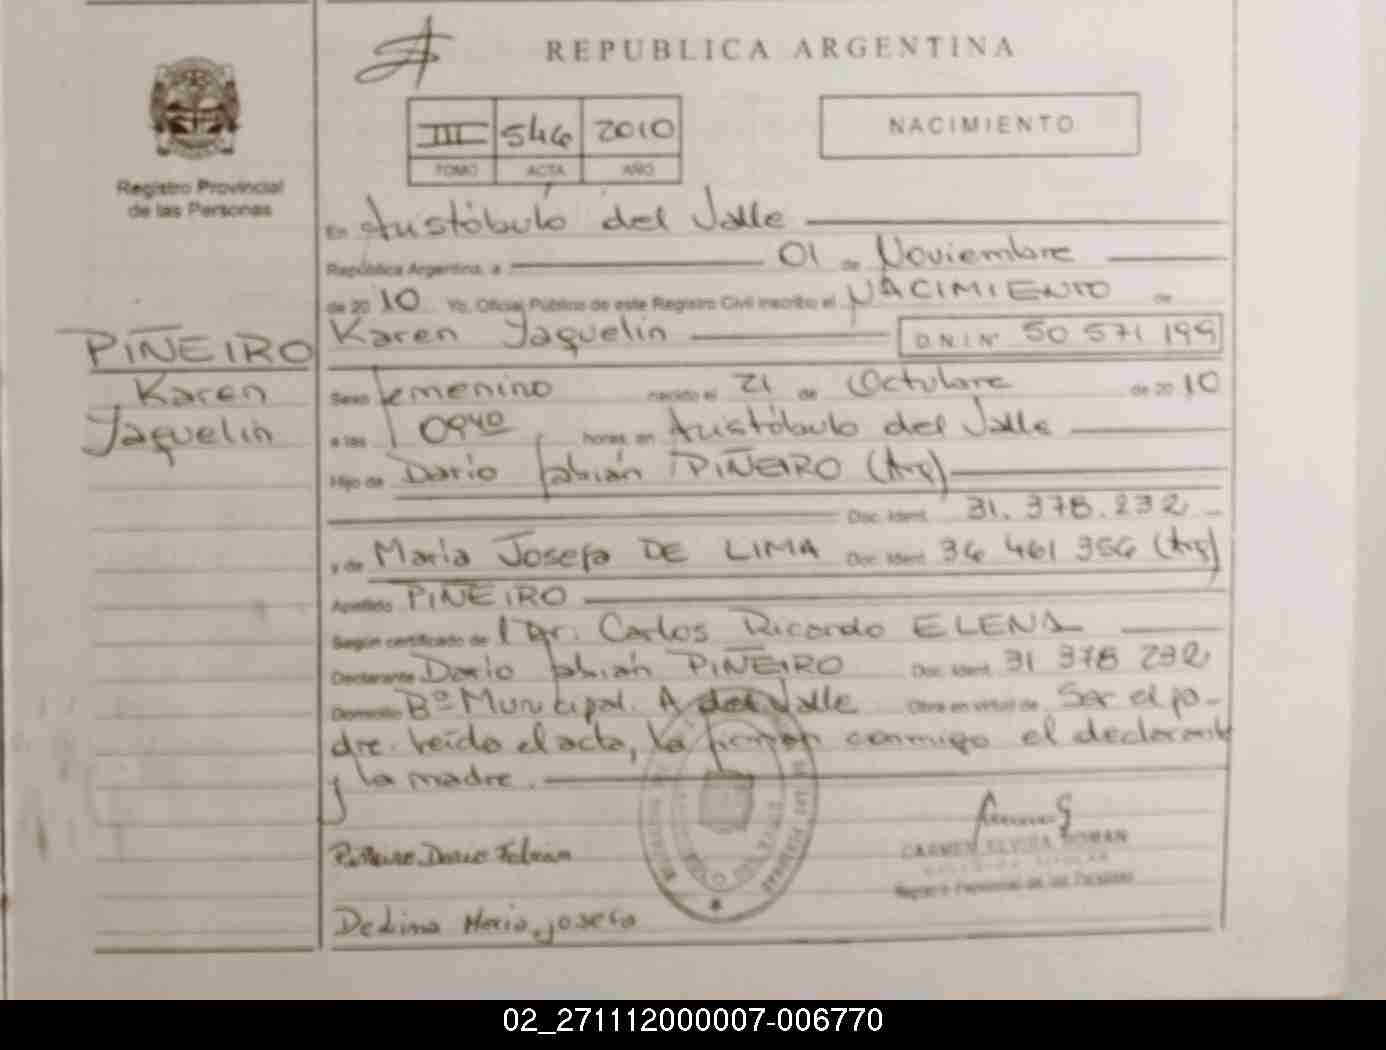 REPUBLICA ARGENTINA
III 546 2010
TOMO ACTA AÑO
NACIMIENTO
Registro Provincial
de las Personas
En Aristóbulo del Valle
República Argentina, a 01 de Noviembre
de 2010 Yo, Oficial Público de este Registro Civil inscribo el NACIMIENTO de
Karen Jaquelin D N I Nº 50 571 199
PIÑEIRO
Karen
Jaquelin
Sexo femenino nacido el 21 de Octubre de 2010
a las 0940 horas en Aristóbulo del Valle
Hijo de Dario fabián PIÑEIRO (Arg)
Doc. Ident. 31.378.232
y de Maria Josefa DE LIMA Doc. Ident. 36 461 356 (Arg)
Apellido PIÑEIRO
Según certificado de Dr. Carlos Ricardo ELENA
Declarante Dario fabián PIÑEIRO Doc. Ident. 31 378 232
Domicilio Bº Municipal. A del Valle Obra en virtud de Ser el pa-
dre. leido el acta, la firman conmigo el declarante
y la madre.
Piñeiro Dario Fabian
CARMEN ELVIRA ROMAN
Registro Provincial de las Personas
De Lima Maria Josefa
02_271112000007-006770